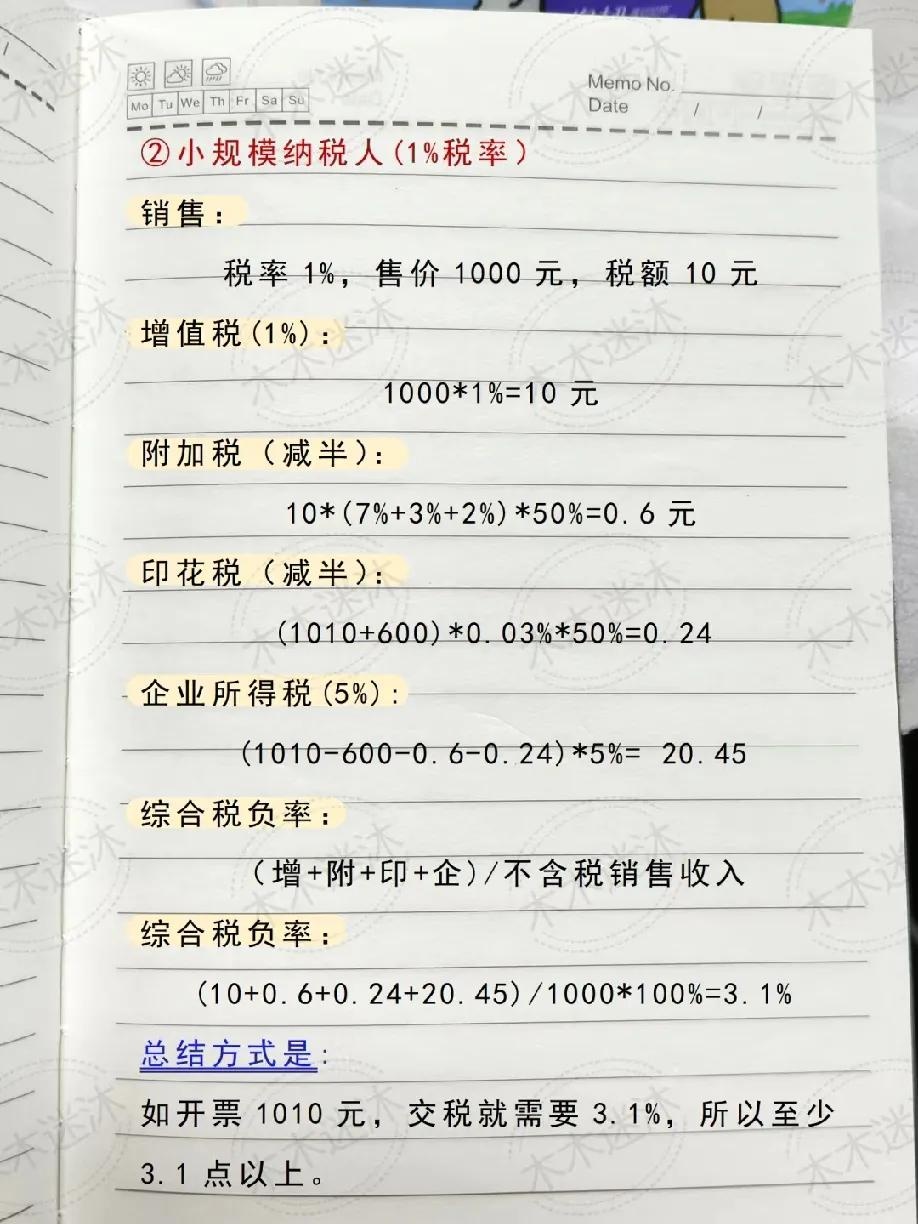 Mo Tu We Th Fr Sa Su
Memo No.
Date / /
②小规模纳税人(1%税率)
销售：
税率1%，售价1000元，税额10元
增值税(1%)：
1000*1%=10 元
附加税（减半）：
10*(7%+3%+2%)*50%=0.6 元
印花税（减半）：
(1010+600)*0.03%*50%=0.24
企业所得税(5%)：
(1010-600-0.6-0.24)*5%= 20.45
综合税负率：
（增+附+印+企)/不含税销售收入
综合税负率：
(10+0.6+0.24+20.45)/1000*100%=3.1%
总结方式是:
如开票1010元，交税就需要3.1%，所以至少
3.1点以上。
木木迷沐